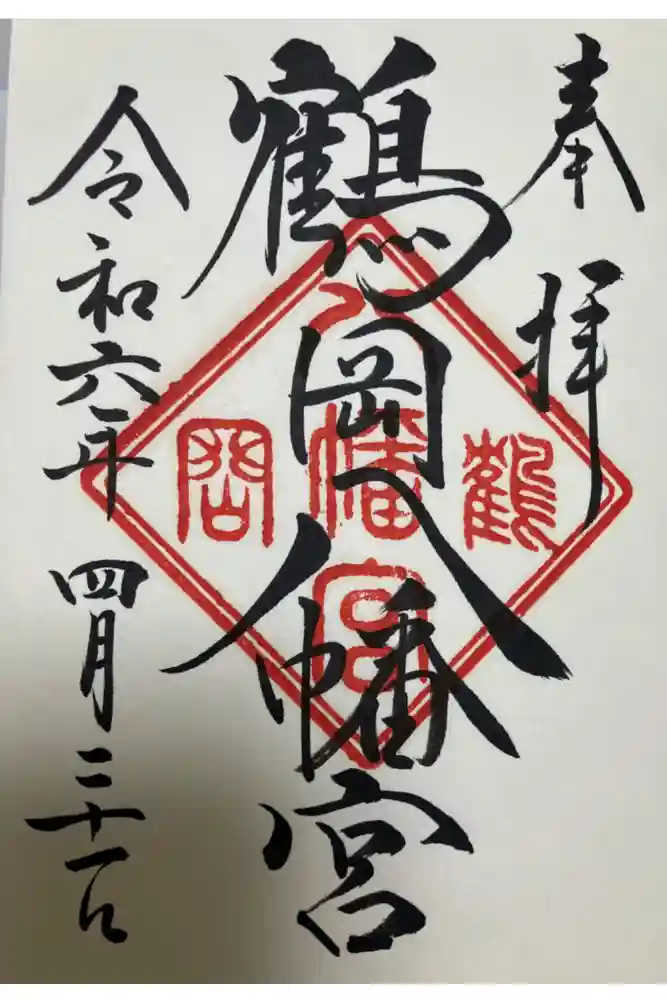 奉拝
鶴岡八幡宮
令和六年 四月二十一日
鶴
八幡宮
岡